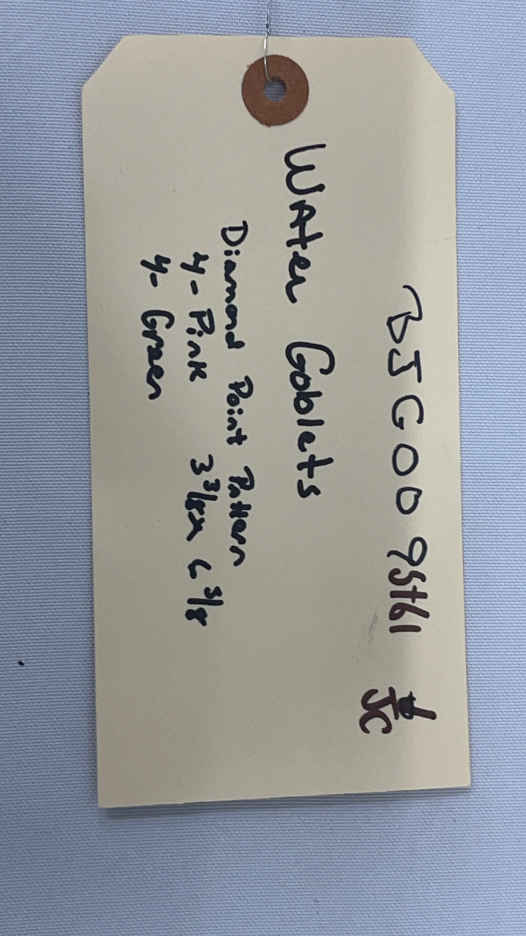 BJG00
Water Goblets
Diamond Point Pattern
4- Pink 3 3/8 x 6 3/8
4- Green
JC